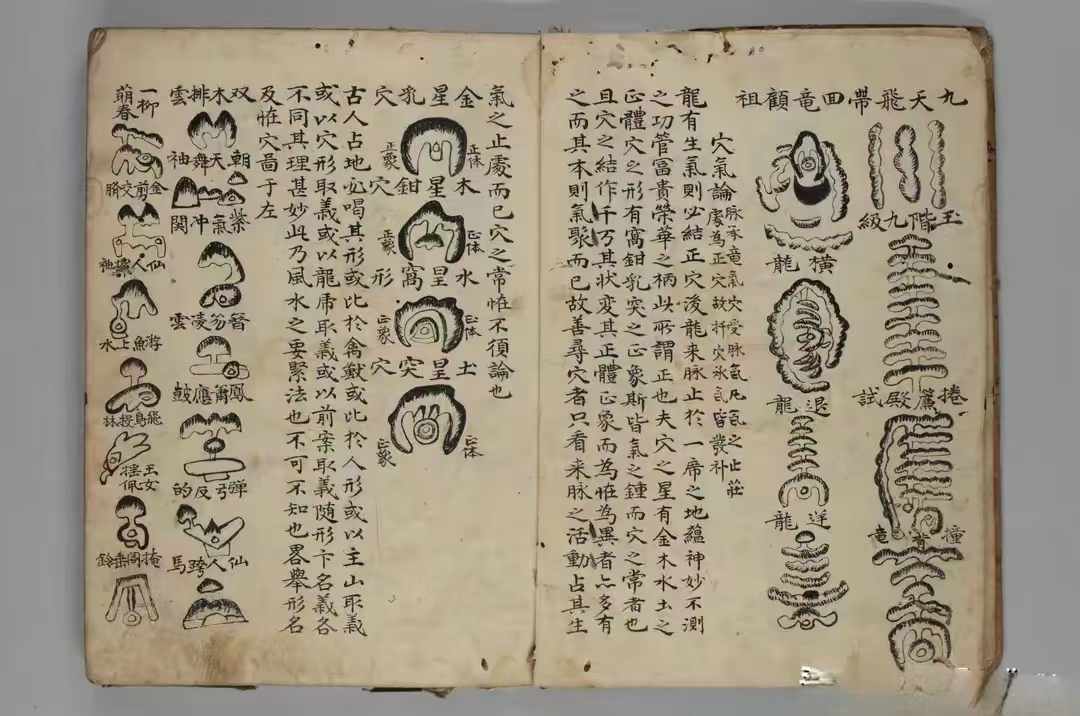 九天飛帶
回竜顧祖
玉階九級
捲簾殿試
撞背竜
橫龍
退龍
逆龍
穴氣論
脉承竜氣穴受脉氣凡氣之止莊
處為正穴故扦穴氣皆發
龍有生氣則必結正穴後龍来脉止於一席之地蘊神妙不測
之功管富貴榮華之柄此所謂正也夫穴之星有金木水土之
正體穴之形有窩鉗乳突之正象斯皆氣之鍾而穴之常者也
且穴之結作千万其状变其正體正象而為恠為異者亦多有
之而其本則氣聚而已故善尋穴者只看来脉之活動占其生
氣之止處而已穴之常恠不須論也
金星乳穴
正体
正象
木星鉗穴
正体
正象
水星窩形
正体
正象
土星突穴
正体
正象
古人占地必喝其形或比於禽獸或比於人形或以主山取義
或以穴形取義或以龍虎取義或以前案取義随形卞名義各
不同其理甚妙此乃風水之要緊法也不可不知也畧舉形名
及恠穴啚于左
双木排雲
朝天舞袖
紫氣冲関
簪笏凌雲
鳳簫應皷
弹弓反的
仙人跨馬
一柳萌春
金剪交股
仙人
游魚上水
飛鳥投林
玉女搖佩
掩閣垂鈴